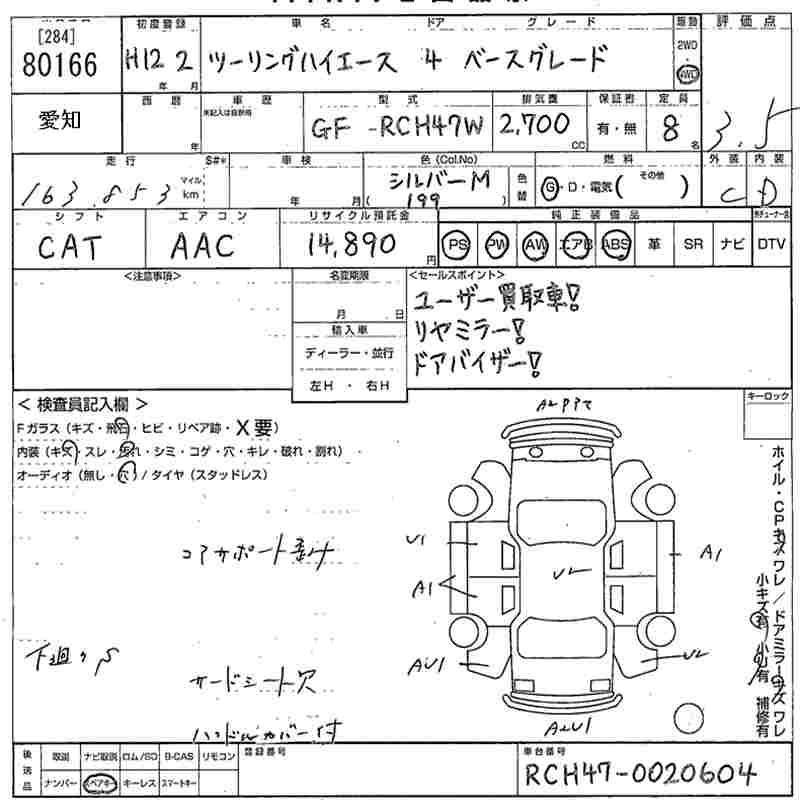 [284]
80166
初度登録
H12 2
年 月
車名 ドア グレード
ツーリングハイエース 4 ベースグレード
駆動
2WD
4WD
評価点
3.5
愛知
西暦
年
車歴
未記入は自家用
型式
GF -RCH47W
排気量
2,700
CC
保証書
有・無
定員
8
名
走行
163,853
マイル
km
S#*
車検
年 月
色 (Col.No)
シルバーM
( 199 )
色替
燃料
G・D・電気( その他 )
外装
C
内装
D
シフト
CAT
エアコン
AAC
リサイクル預託金
14,890
円
純正装備品
PS PW AW エアB ABS 革 SR ナビ
DTV
<注意事項>
名変期限
月 日
輸入車
ディーラー・並行
左H ・ 右H
<セールスポイント>
ユーザー買取車!
リヤミラー!
ドアバイザー!
キーロック
< 検査員記入欄 >
Fガラス (キズ・飛石・ヒビ・リペア跡・X要)
内装 (キズ・スレ・汚れ・シミ・コゲ・穴・キレ・破れ・割れ)
オーディオ (無し・穴) / タイヤ (スタッドレス)
コアサポート
下廻りS
サードシート穴
ハンドルカバー付
U1
A1
A1
AU1
UL
UL
A2U1
ホイル・CPキズワレ / ドアミラーキズワレ
小キズ有 小凹有 補修有
後送品
取説 ナビ取説 ロム/SD B-CAS リモコン
ナンバー スペアキー キーレス スマートキー
登録番号
車台番号
RCH47-0020604